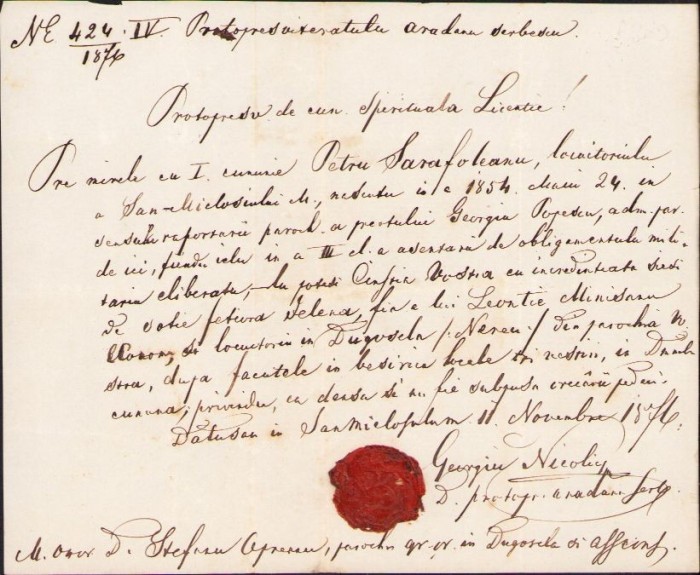 NE 424 . IV. Protopresviteratulu aradanu serbescu.
1876
Protopresv. de cun. Spirituala Licentie!
Pre mirele cu I. cununie Petru Sarafoleanu, locuitoriulu
a San-Miclosiului M., nascutu in a 1854 Maiu 24. in
sensulu raportarii paroch. a preotului Georgiu Popescu, adm. par.
de ici, fiindu elu in a III cl. a asentarii de obligamentulu mili-
tariu eliberatu,
de sotie fetiora Jelena, fia a lui Leontie Minisanu
econom, si locuitoriu in Dugosela /: Nereu :/ din parochia vo
stra, dupa facutele in beserica vestiri, in
cununa, privindu, ca densa si nu fie subpusa
Datusau in SanMiclosulum. 11 Novembre 1876.
Georgiu Nicolicy
D. protopr. aradanu serb.
M. onor D. Stefanu Oprenu, parochu gr. or. in Dugosela si